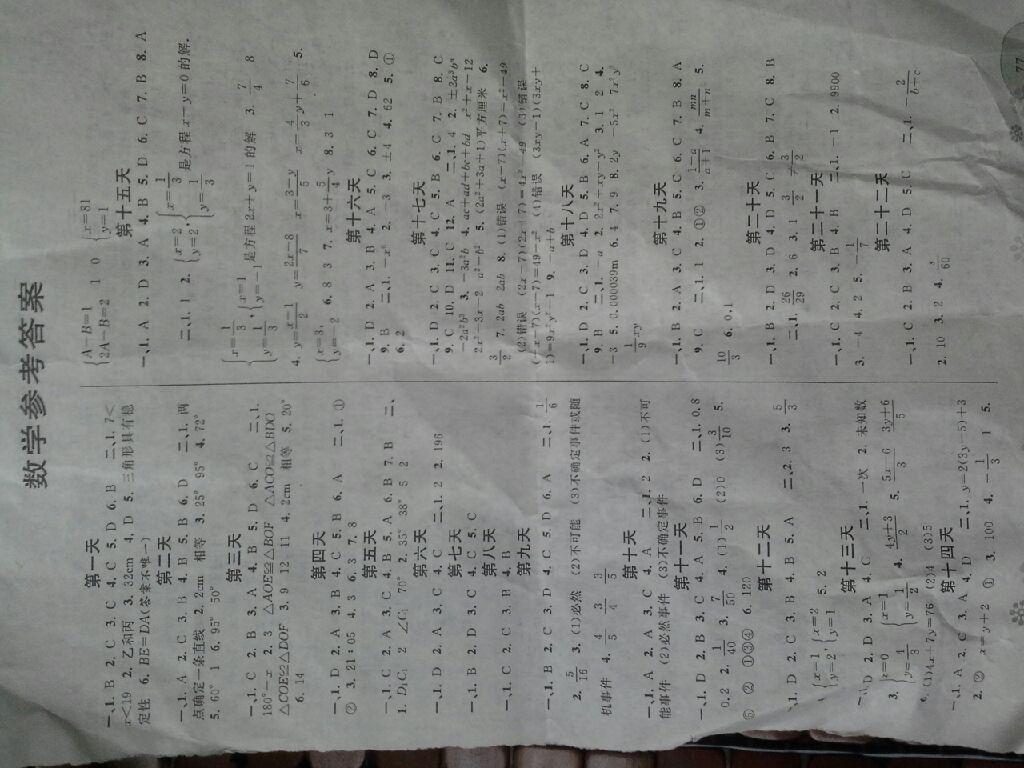 数学参考答案
第一天
一、1. B 2. C 3. C 4. C 5. D 6. B 二、1. 7<
x<11.9 2. 乙和丙 3. 32cm 4. D 5. 三角形具有稳
定性 6. BE=DA(答案不唯一)
第二天
一、1. A 2. C 3. B 4. B 5. B 6. D 二、1. 两
点确定一条直线 2. 2cm 相等 3. 25° 95° 4. 72°
5. 60° 1 6. 95° 50°
第三天
一、1. D 2. B 3. A 4. B 5. D 6. C 二、1.
180°−x 2. 3 △AOE≌△BOF △ACO≌△BDO
△COE≌△DOF 3. 9 12 11 4. 2cm 相等 5. 20°
6. 14
第四天
一、1. D 2. A 3. B 4. C 5. B 6. A 二、1. ①
② 3. 21:05 4. 3 6. 3 7. 8
第五天
一、1. C 2. A 3. C 4. B 5. A 6. B 7. B 二、
1. D₁C₁ 2 ∠C₁ 70° 2. 35° 38° 5 2
第六天
一、1. D 2. A 3. C 4. C 二、1. 2 2. 196
第七天
一、1. B 2. D 3. C 4. C 5. C
第八天
一、1. C 2. C 3. B 4. B
第九天
一、1. B 2. C 3. D 4. C 5. D 6. A 二、1. 1/6
2. 5/16 3. (1)必然 (2)不可能 (3)不确定事件或随
机事件 4. 4/5 3/4 3/5
第十天
一、1. A 2. A 3. C 4. A 二、1. 2 2. (1)不可
能事件 (2)必然事件 (3)不确定事件
第十一天
一、1. D 2. B 3. C 4. A 5. B 6. D 二、1. 0.8
0.2 2. 1/40 3. 7/50 4. (1)1/2 (2)0 (3)3/10 5.
⑤ ② ①③④ 6. 120
第十二天
一、1. D 2. C 3. B 4. B 5. A 二、2. 3 3. 5/3
{x=1 y=2 {x=2 y=1 5. 2
第十三天
一、1. D 2. D 3. A 4. C 二、1. 一次 2. 未知数
3. {x=0 y=1/3 {x=1 y=1/2 4. 4y+3/2 5. 5x−6/3 3y+6/5
6. (1)4x+7y=76 (2)4 (3)5
第十四天
一、1. A 2. C 3. A 4. D 二、1. y=2(3y−5)+3
2. ② x=y+2 ① 3. 100 4. −1/3 1 5.
{A−B=1 2A−B=2 1 0 {x=81 y=1
第十五天
一、1. A 2. D 3. A 4. B 5. D 6. C 7. B 8. A
二、1. 1 2. {x=2 y=2 {x=1/3 y=1/3 是方程x−y=0的解,
{x=1/3 y=1/3 {x=1 y=−1 是方程2x+y=1的解 3. 7/4 8
4. y=x−1/2 y=2x−8/7 x=3−y/5 x=−4/3y+7/6 5.
{x=3, y=−2 6. 8 3 7. x=3+5/4y 8. 3 1
第十六天
一、1. D 2. A 3. B 4. A 5. C 6. C 7. D 8. D
9. B 二、1. −x⁶ 2. −3 3. ±4 4. 62 5. ①
6. 2
第十七天
一、1. D 2. C 3. C 4. C 5. B 6. C 7. B 8. C
9. C 10. D 11. C 12. A 二、1. 4 2. ±2a³b⁴
−2a²b³ 3. −3a²b 4. ac+ad+bc+bd x²+x−12
2x²−3x−2 a²−b² 5. (2a²+3a+1)平方厘米 6.
3/2 7. 2ab 2ab 8. (1)错误 (x−7)(x+7)=x²−49
(2)错误 (2x−7)(2x+7)=4x²−49 (3)错误
(−x−7)(x−7)=49−x² (4)错误 (3xy−1)(3xy+
1)=9x²y²−1 9. −a+b
第十八天
一、1. D 2. C 3. D 4. D 5. B 6. A 7. C 8. C
9. B 二、1. −a 2. 2x²−xy−y² 3. 1 2 4.
3 5. 0.000039m 6. 4 7. 9 8. 2y −5x² 7x²y²
1/9xy
第十九天
一、1. B 2. A 3. C 4. B 5. C 6. C 7. B 8. A
9. C 二、1. 1 2. ①② 3. 1−a/a+1 4. mn/m+n 5.
10/3 6. 0.1
第二十天
一、1. B 2. D 3. D 4. D 5. C 6. B 7. C 8. B
二、1. 26/29 2. 6 3. 1 3/2 3/2
第二十一天
一、1. C 2. C 3. B 4. B 二、1. −1 2. 9900
3. −4 4. 2 5. −1/7
第二十二天
一、1. C 2. B 3. A 4. D 5. C 二、1. −2/b+c
2. 10 3. 2
77